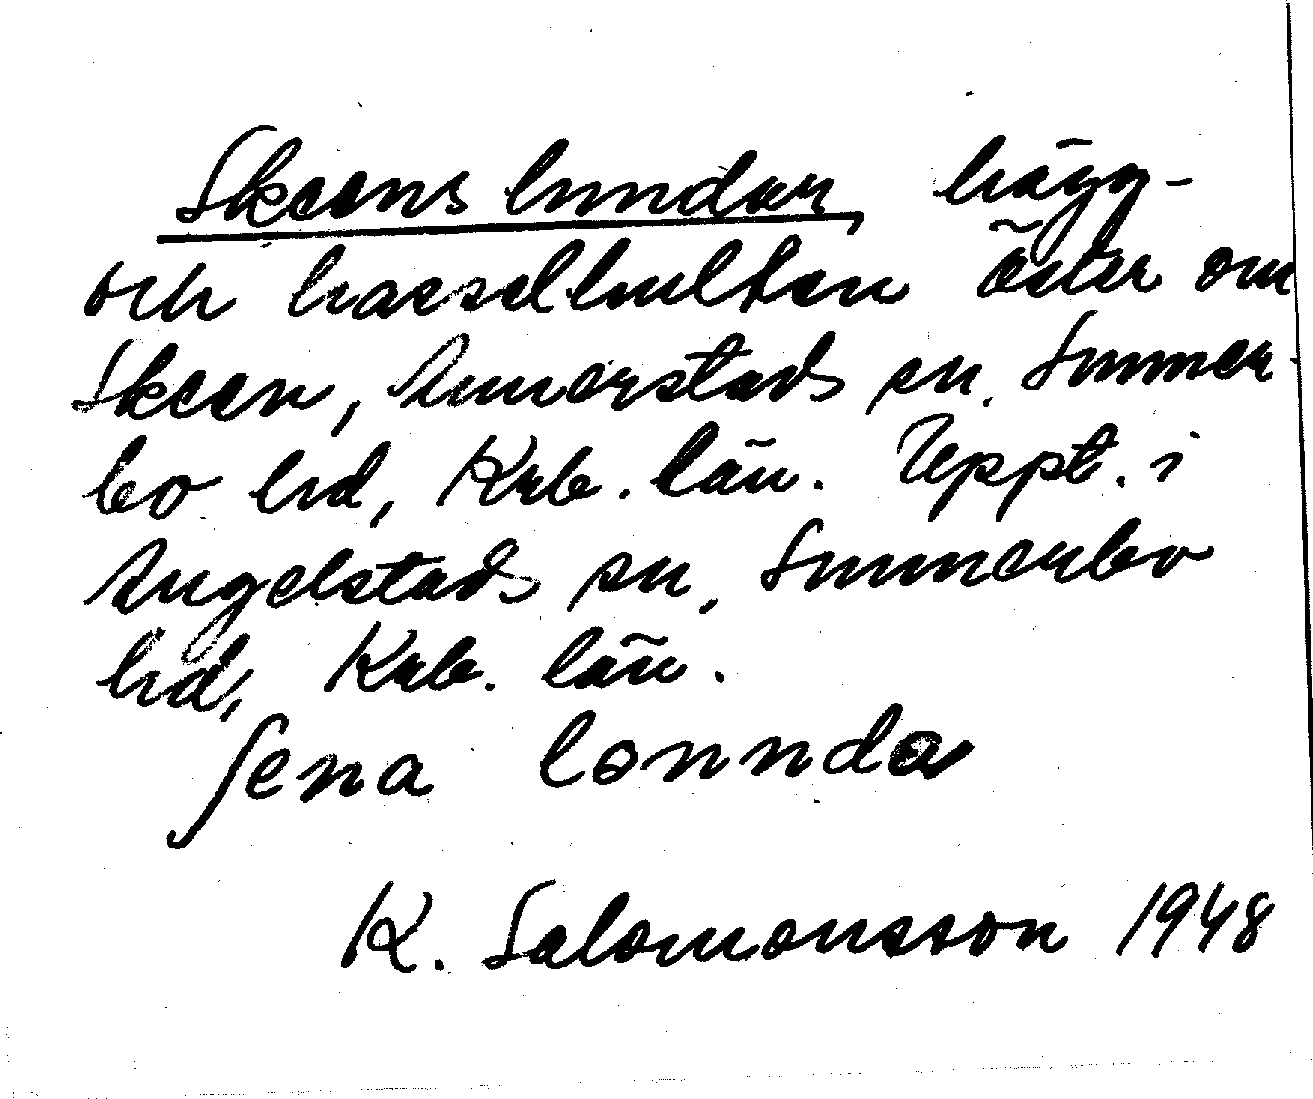 Skeens lundar, hägg-
och hasselhulten öster om
Skeen, Annerstads sn, Sunner-
bo hd, Krb. län. Uppt. i
Angelstads sn, Sunnerbo
hd, Krb. län.
ʃena lonnda
K. Salomonsson 1948